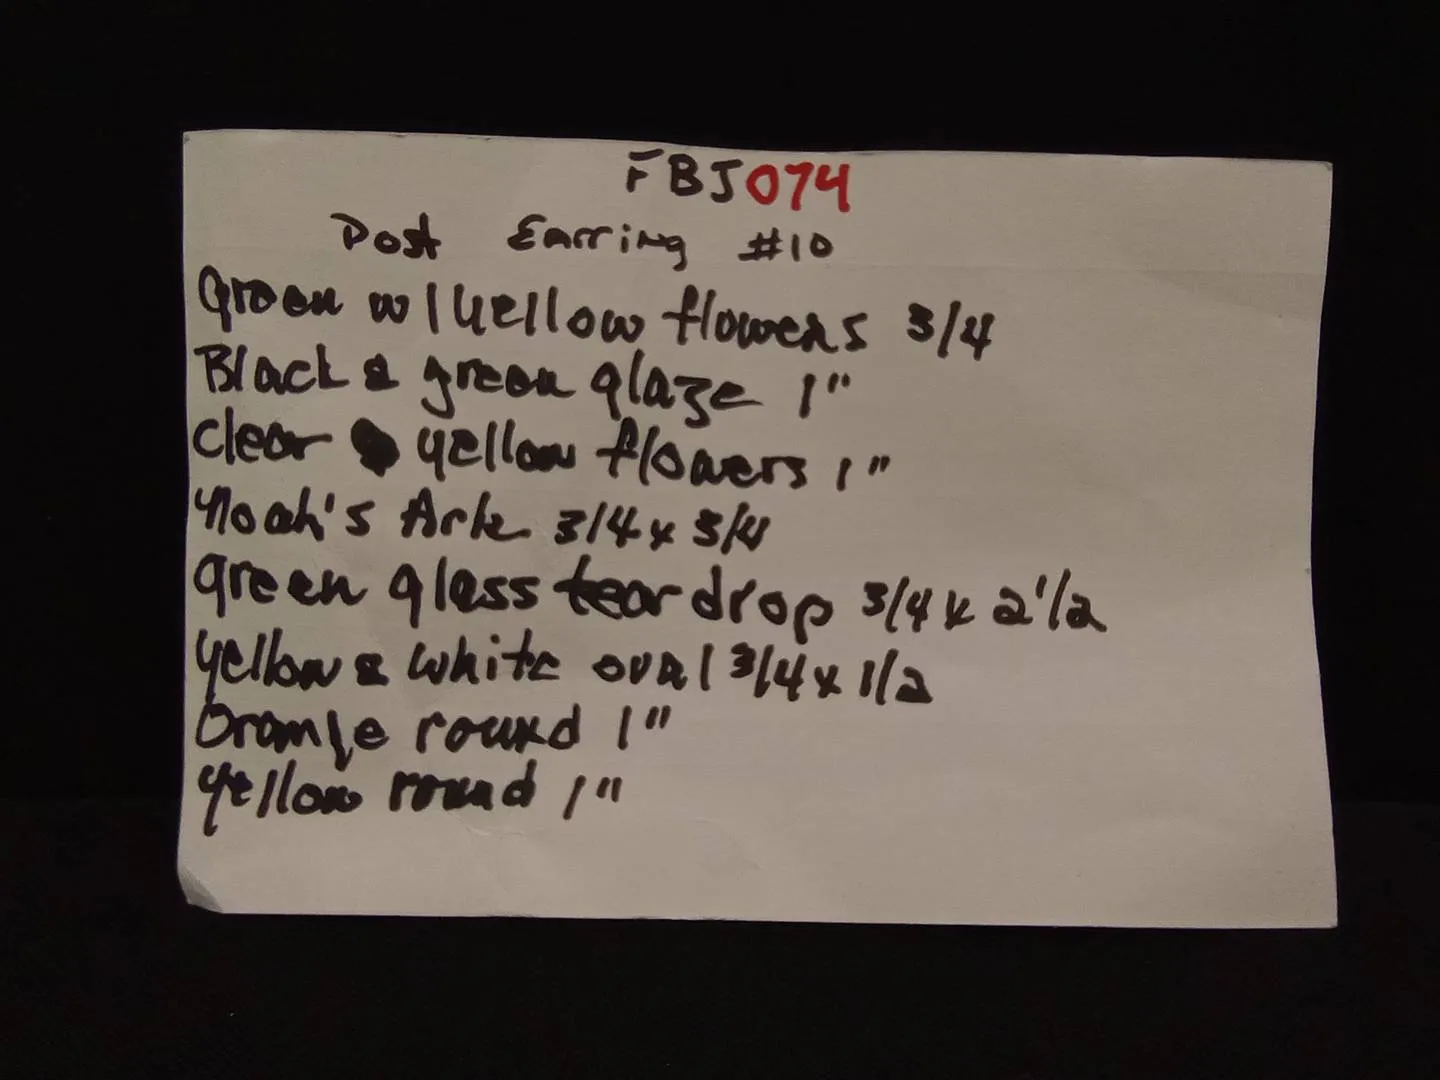 FBJ074
Post Earring #10
Green w/yellow flowers 3/4
Black & green glaze 1"
clear yellow flowers 1"
Noah's Ark 3/4 x 3/4
green glass tear drop 3/4 x 2 1/2
yellow & white oval 3/4 x 1/2
Orange round 1"
yellow round 1"